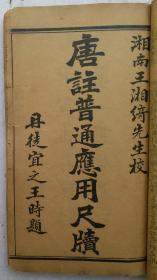 湘南王湘綺先生校
唐註普通應用尺牘
丹徒宜之王時題